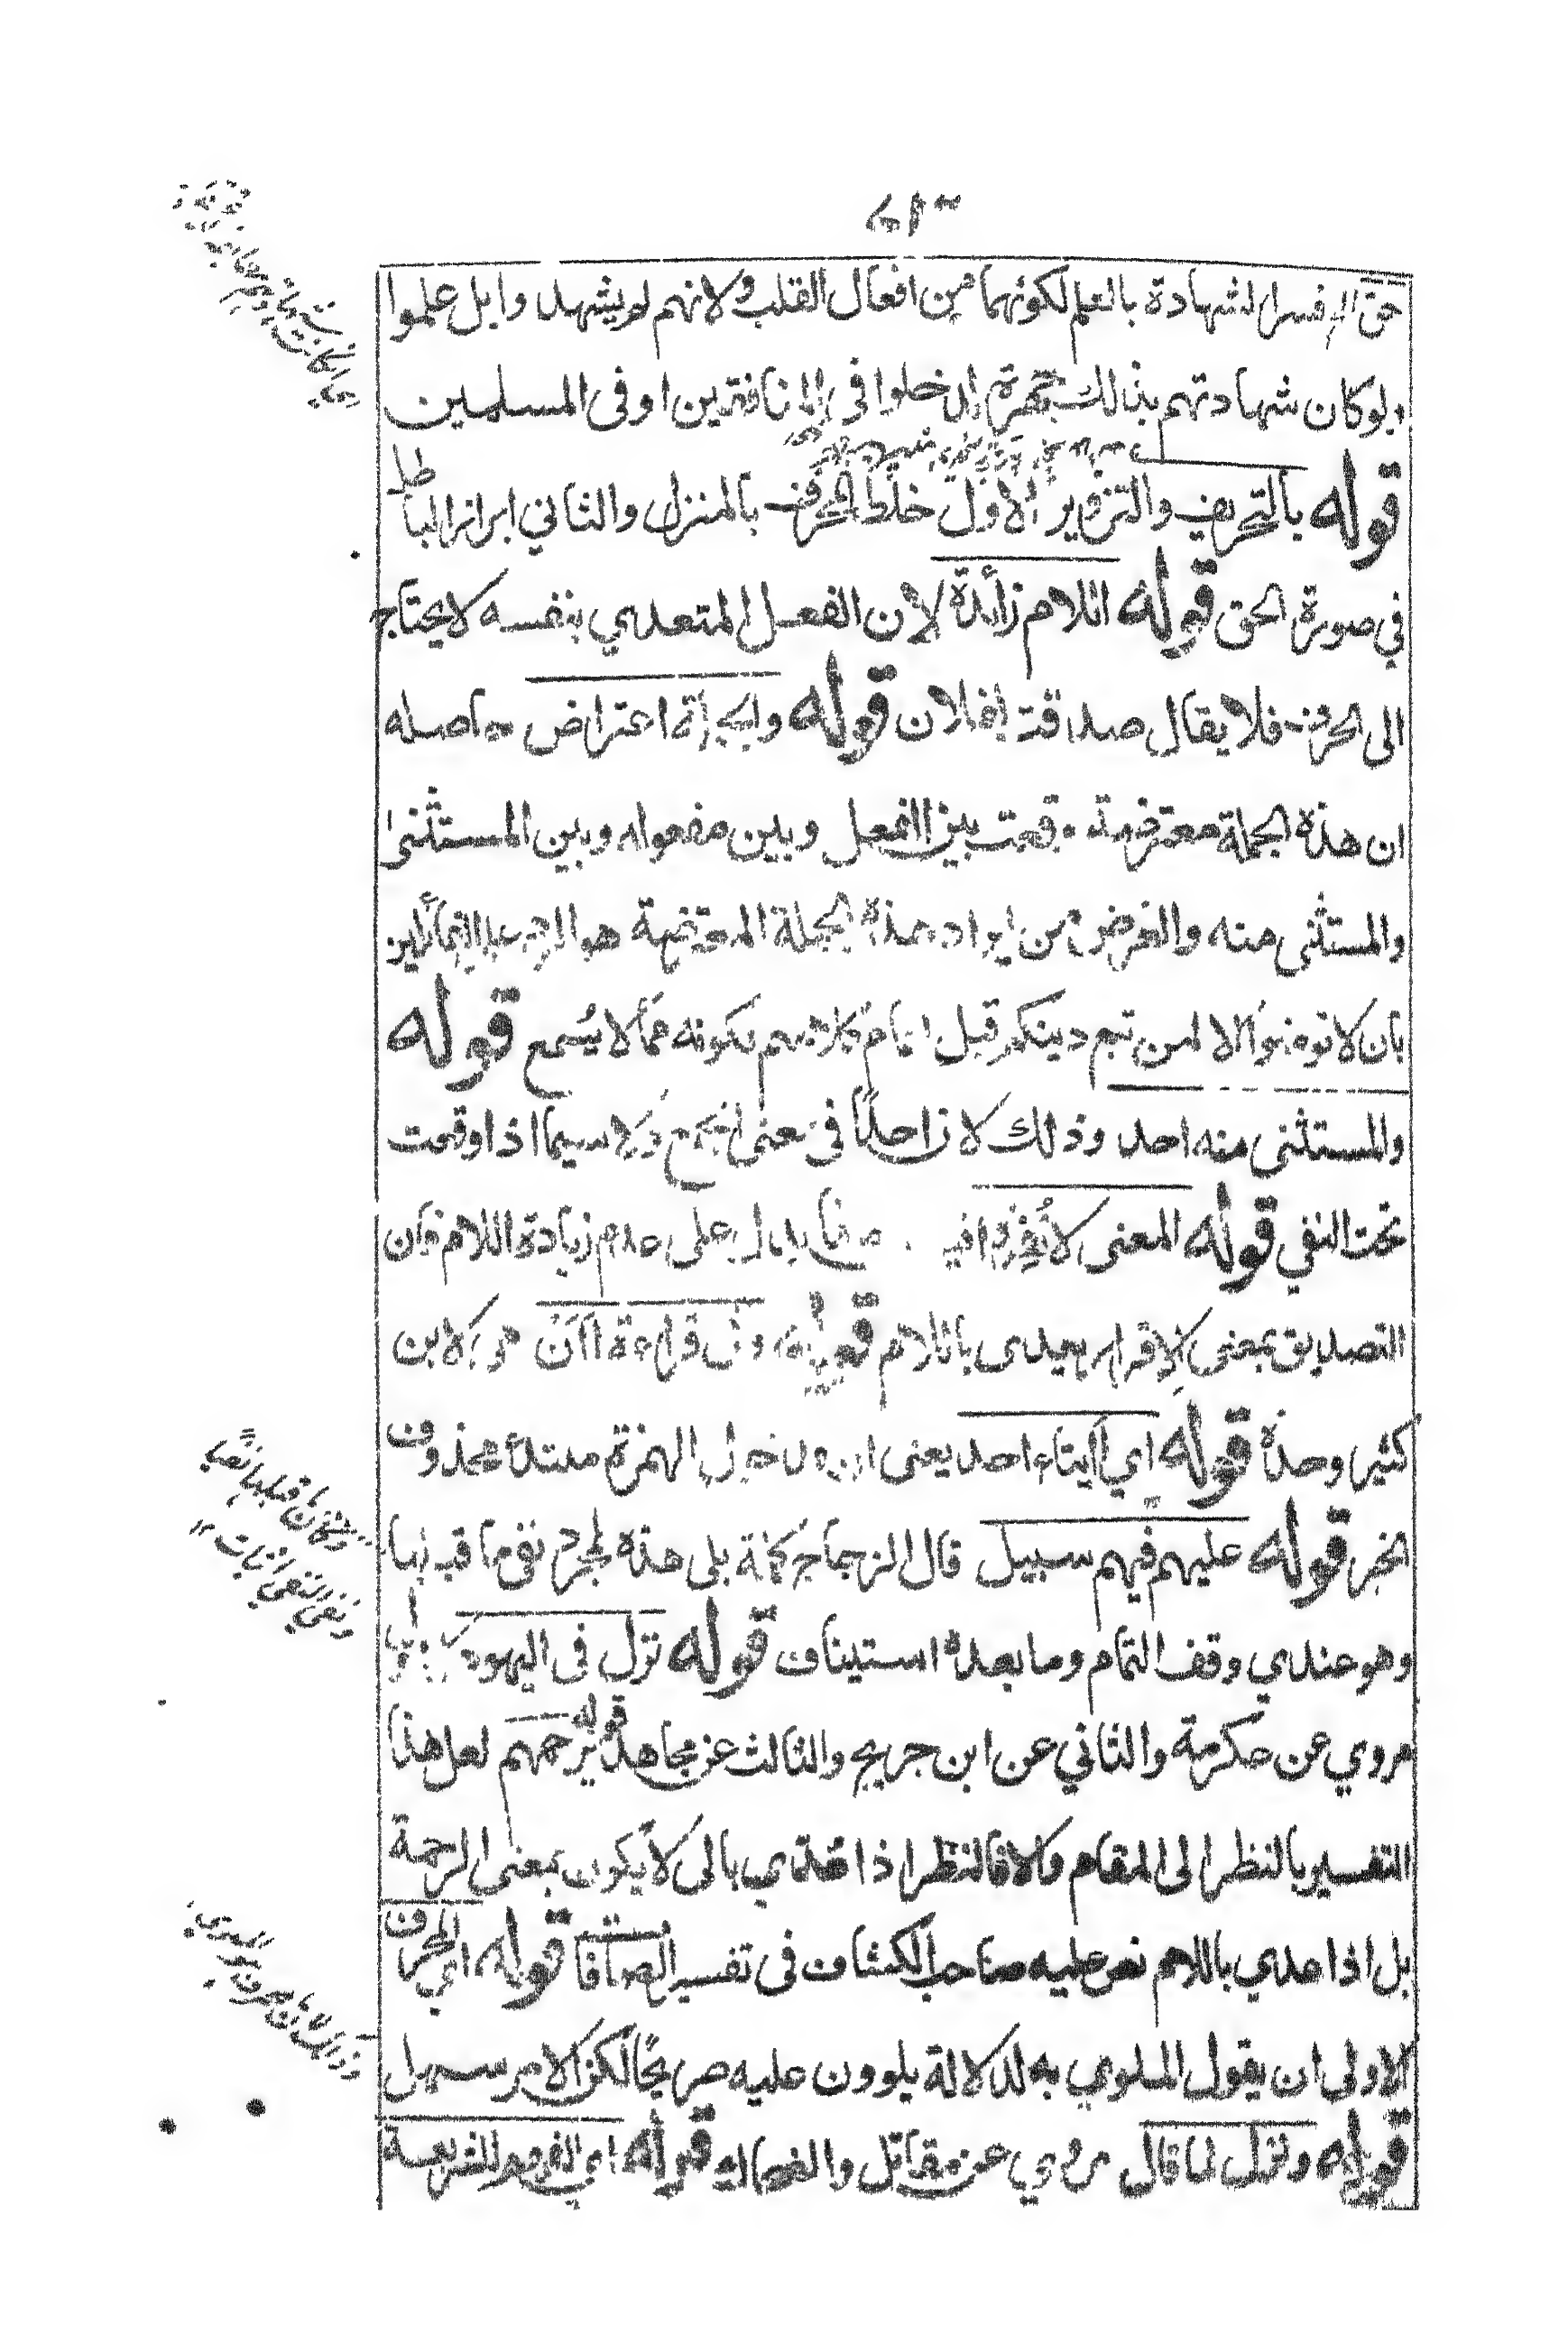 حق الخ فسر الشهادة بالعلم لكونهما من افعال القلب ولانهم لم يشهدوا بل علموا
ولو كان شهادتهم بذالك جهرة لدخلوا فى المنافقين او فى المسلمين
قوله بالتحريف والتزوير الاول خلط المحرف بالمنزل والثاني ابراز الباطل
في صورة الحق قوله اللام زائدة لان الفعل المتعدي بنفسه لا يحتاج
الى الحرف فلا يقال صدقت لفلان قوله والجملة اعتراض حاصله
ان هذه الجملة معترضة وقعت بين الفعل وبين مفعوله وبين المستثنى
والمستثنى منه والغرض من ايراد هذه الجملة المعترضة هو الرد على القائلين
بان لا تؤمنوا الا لمن تبع دينكم قبل اتمام كلامهم لكونه مما لا يسمع قوله
والمستثنى منه احد وذلك لان احدا فى معنى الجمع لا سيما اذا وقعت
تحت النفي قوله المعنى لا تقروا هذا يدل على عدم زيادة اللام فان
التصديق بمعنى الاقرار يعدى باللام قوله وفى قراءة أأن هو لابن
كثير وحده قوله اي أايتاء احد يعنى ان مدخول الهمزة مبتدأ محذوف
الخبر قوله عليهم فيهم سبيل قال الزجاج كلمة بلى هذه لمجرد نفى ما قبلها
وهو عندي وقف التمام وما بعده استيناف قوله نزل فى اليهود
مروي عن عكرمة والثاني عن ابن جريج والثالث عن مجاهد قوله يرحمهم لعل هذا
التفسير بالنظر الى المقام والا فالنظر اذا عدي بالى لا يكون بمعنى الرحمة
بل اذا عدي باللام نص عليه صاحب الكشاف فى تفسير الصافات قوله اي المحرف
الاولى ان يقول الملوي به لدلالة يلوون عليه صريحا لكن الامر سهل
قوله ونزل لما قال مروي عن مقاتل والضحاك قوله اي الفهم للشريعة
ونفي النفي اثبات ١٢